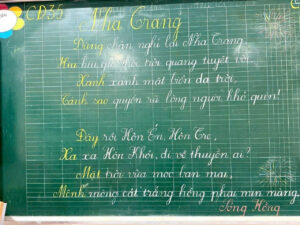 CD35
Nha Trang
Dừng chân nghỉ lại Nha Trang
Hiu hiu gió thổi trời quang tuyệt vời.
Xanh xanh mặt biển da trời,
Cảnh sao quyến rũ lòng người khó quên!
Đây rồi Hòn Én, Hòn Tre,
Xa xa Hòn Khói, đi về thuyền ai?
Mặt trời vừa mọc ban mai,
Mênh mông cát trắng hồng phai mịn màng.
Sóng Hồng